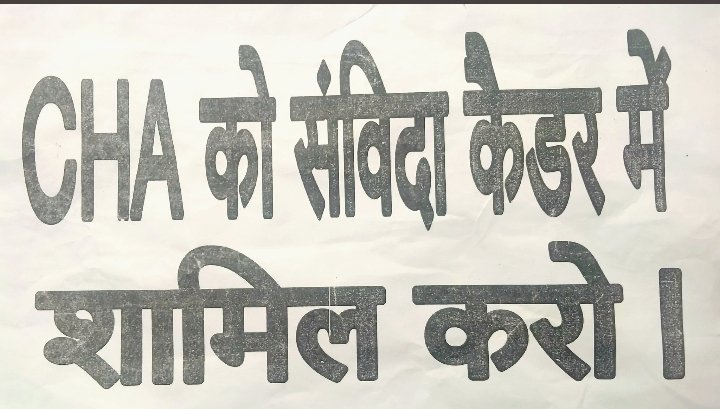 CHA को संविदा कैडर में
शामिल करो।